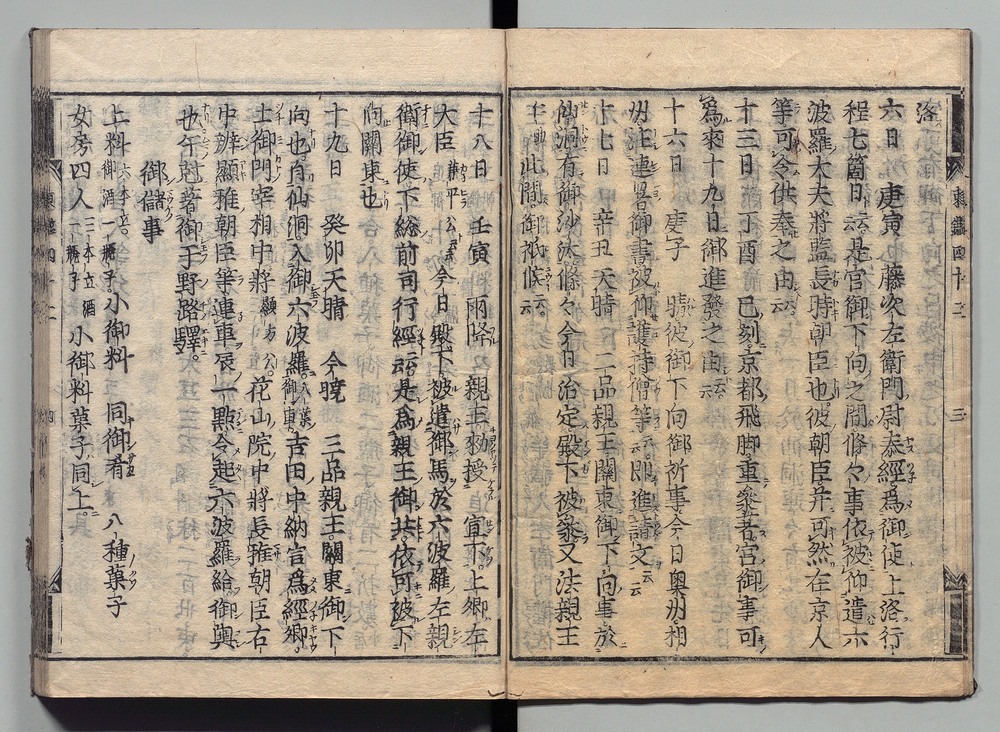 洛
六日 庚寅 藤次左衞門尉泰經爲御使上洛行
程七箇日云云是宮御下向之間條々事依被仰遣六
波羅大夫將監長時朝臣也彼朝臣幷可然在京人
等可令供奉之由云云
十三日 丁酉 巳刻京都飛脚重參著宮御事可
爲來十九日御進發之由云云
十六日 庚子 晴彼御下向御祈事今日奧州相
州連署御書被仰護持僧等云云即進請文云云
十七日 辛丑 天晴 二品親王關東御下向事於
仙洞有御沙汰條々今日治定殿下被參又法親王
此間御祇候云云
東鑑四十二 三
十八日 壬寅 雨降 親王勅授 宣下上卿左
大臣兼平公云云今日殿下被遣御馬於六波羅左親
衞御使下總前司行經云云是爲親王御共依可被下
向關東也
十九日 癸卯天晴 今曉 三品親王關東御下
向也自仙洞入御六波羅八葉御車吉田中納言爲經卿
土御門宰相中將顯方公花山院中將長雅朝臣右
中辨顯雅朝臣等連車辰一點令起六波羅給御輿
也午尅著御于野路驛
御儲事
上料六本立御酒一瓶子小御料 同御肴 八種菓子
女房四人二本立酒一瓶子 小御料菓子同上
東鑑四十二 四